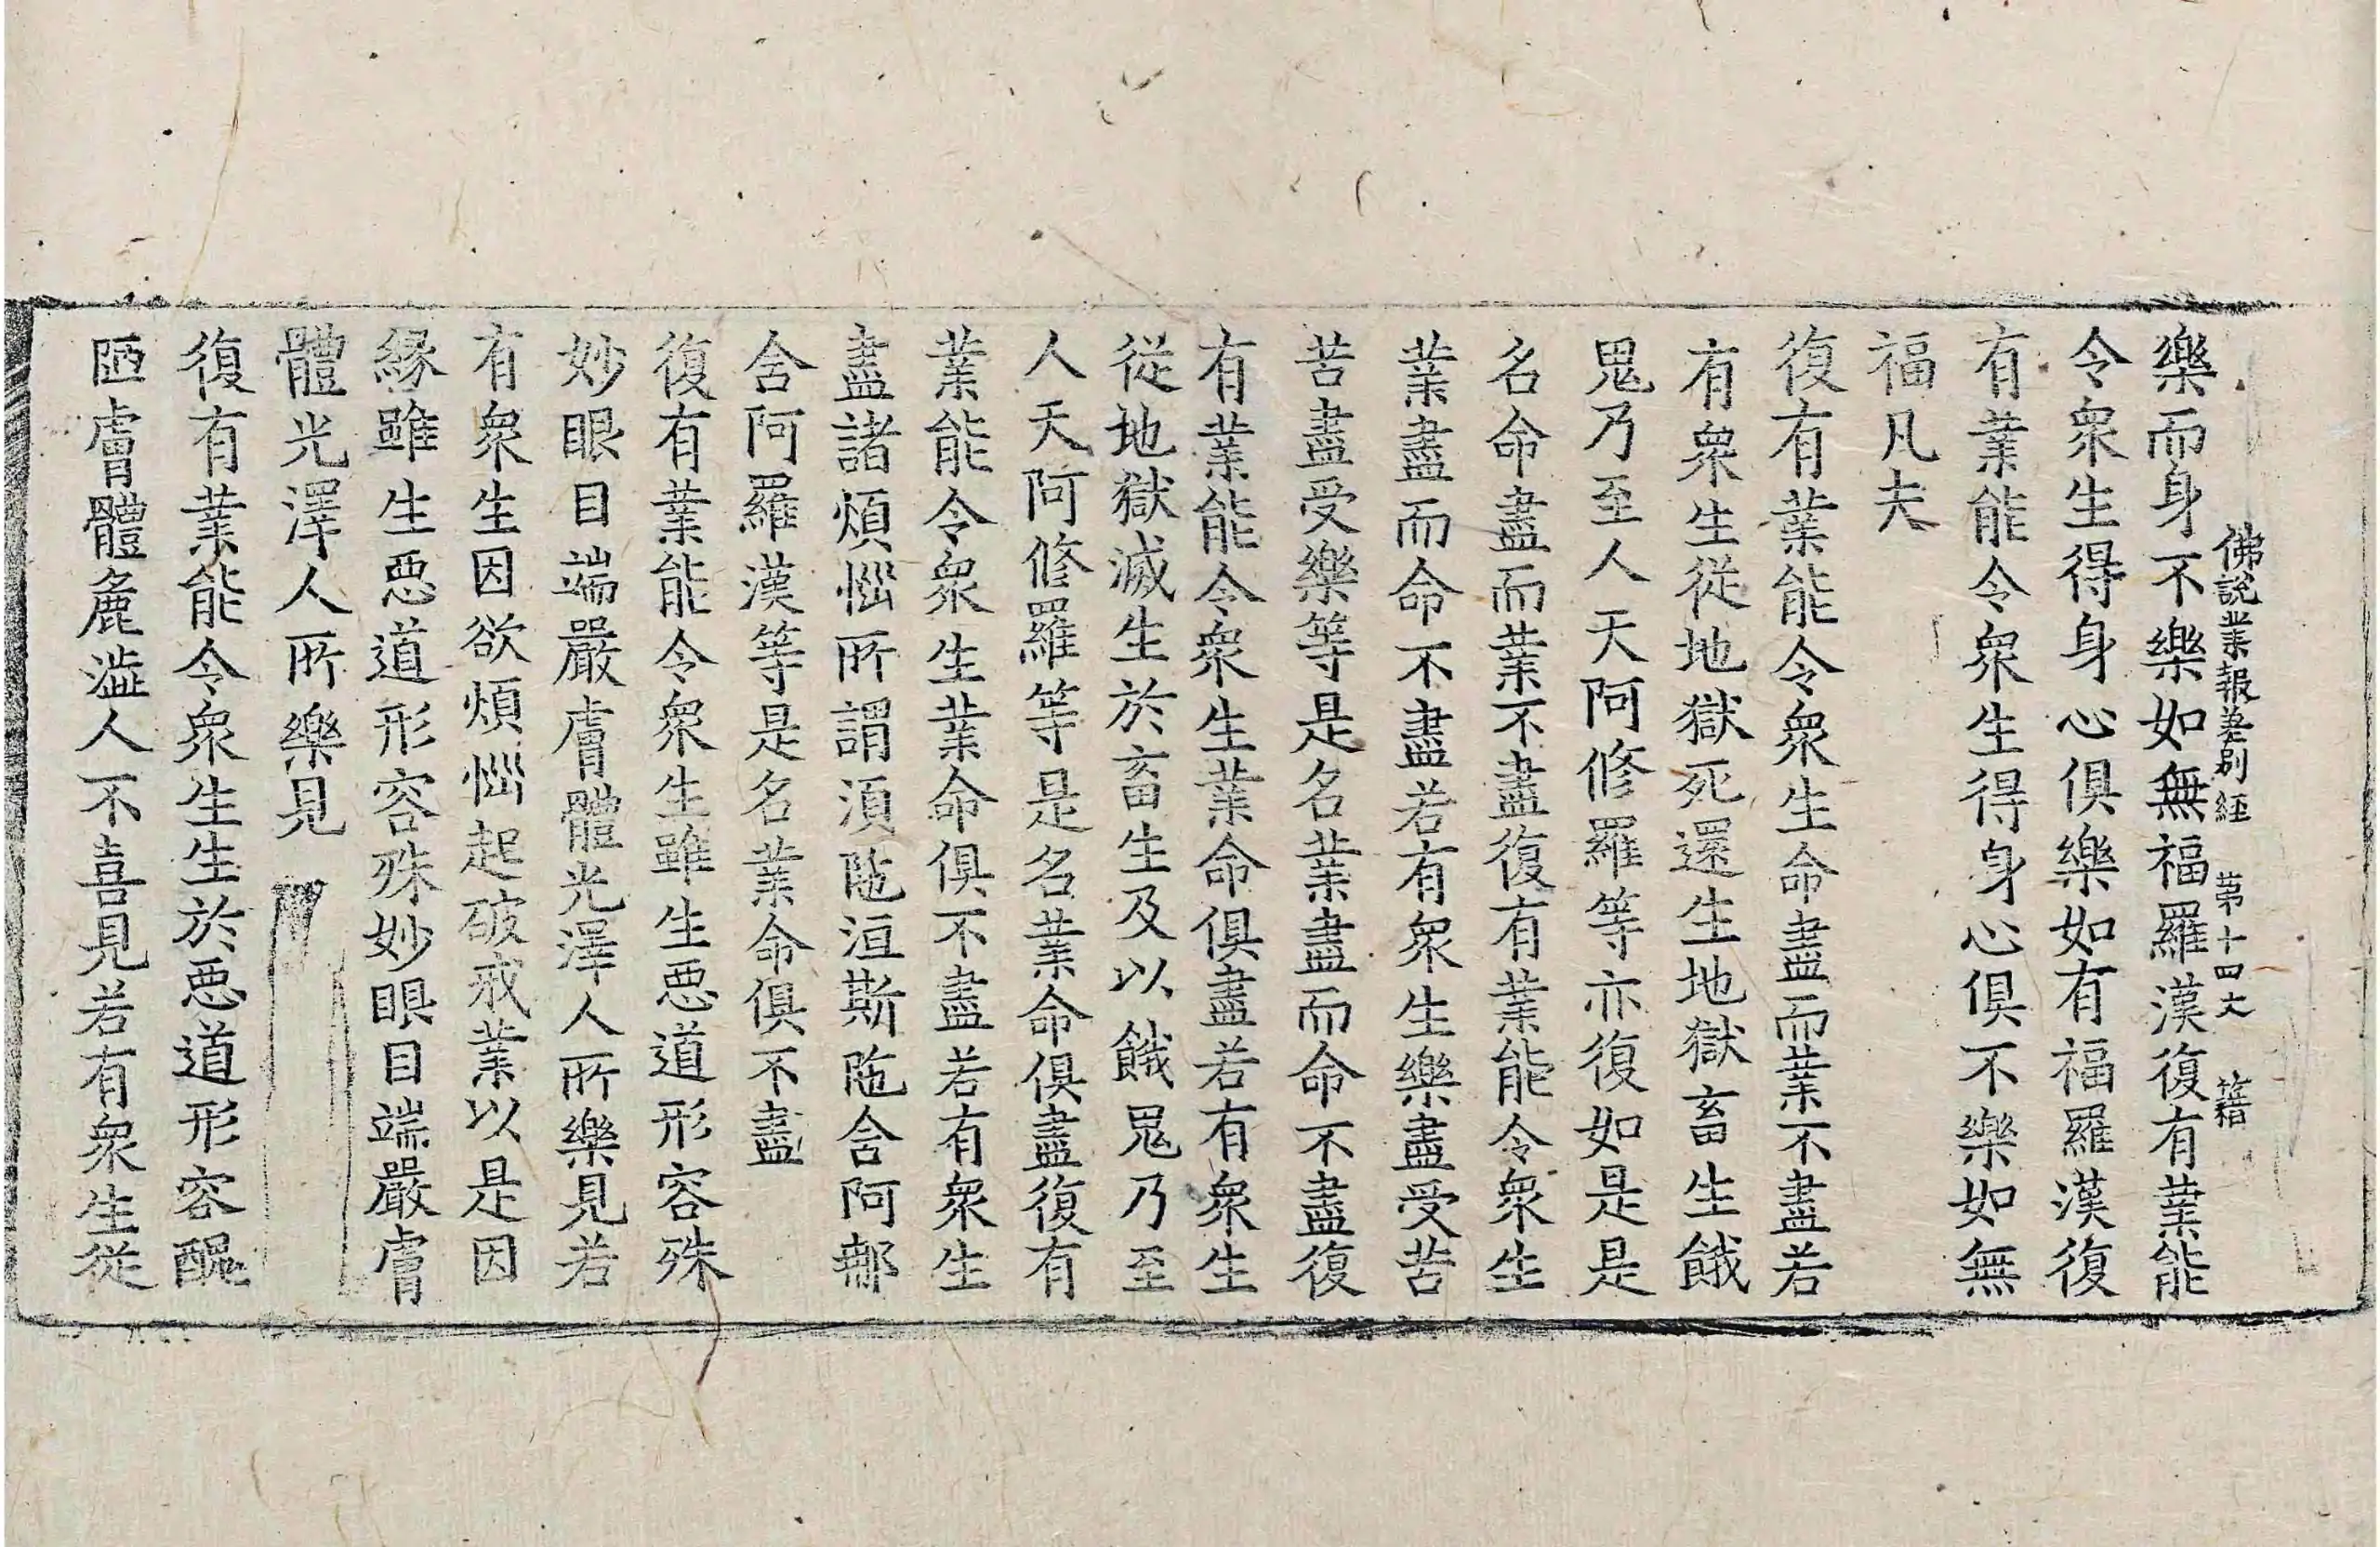 佛說業報差別經 第十四丈 籍
樂而身不樂如無福羅漢復有業能
令衆生得身心俱樂如有福羅漢復
有業能令衆生得身心俱不樂如無
福凡夫
復有業能令衆生命盡而業不盡若
有衆生從地獄死還生地獄畜生餓
鬼乃至人天阿修羅等亦復如是是
名命盡而業不盡復有業能令衆生
業盡而命不盡若有衆生樂盡受苦
苦盡受樂等是名業盡而命不盡復
有業能令衆生業命俱盡若有衆生
從地獄滅生於畜生及以餓鬼乃至
人天阿修羅等是名業命俱盡復有
業能令衆生業命俱不盡若有衆生
盡諸煩惱所謂須陁洹斯陁含阿那
含阿羅漢等是名業命俱不盡
復有業能令衆生雖生惡道形容殊
妙眼目端嚴膚體光澤人所樂見若
有衆生因欲煩惱起破戒業以是因
緣雖生惡道形容殊妙眼目端嚴膚
體光澤人所樂見
復有業能令衆生生於惡道形容醜
陋膚體麁澁人不喜見若有衆生從